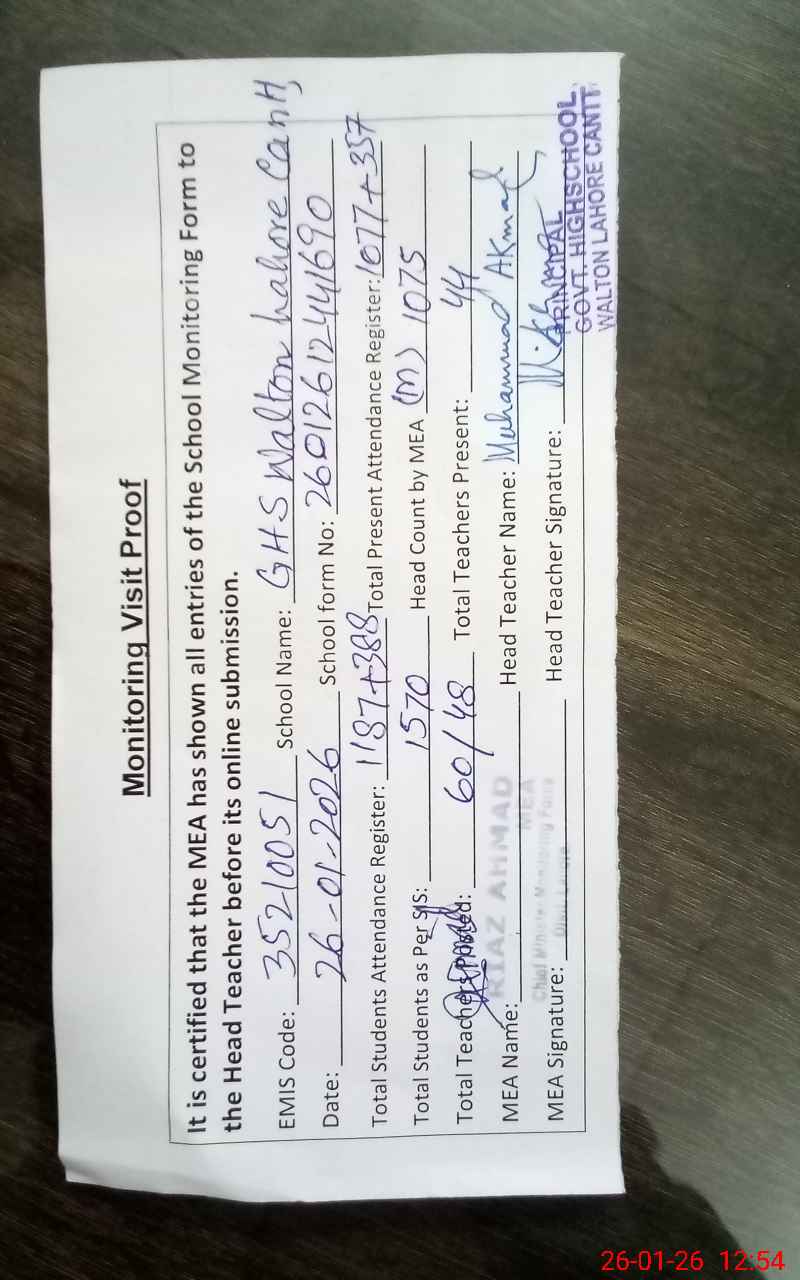 Monitoring Visit Proof
It is certified that the MEA has shown all entries of the School Monitoring Form to
the Head Teacher before its online submission.
EMIS Code: 35210051 School Name: GHS Walton Lahore Cantt,
Date: 26-01-2026 School form No: 260126124441690
Total Students Attendance Register: 1187+388 Total Present Attendance Register: 1077+357
Total Students as Per SIS: 1570 Head Count by MEA (M) 1075
Total Teachers Posted: 60/48 Total Teachers Present: 44
MEA Name: RIAZ AHMAD Head Teacher Name: Muhammad Akmal
MEA
Chief Minister Monitoring Force
MEA Signature: Head Teacher Signature:
PRINCIPAL
GOVT. HIGHSCHOOL,
WALTON LAHORE CANTT.
26-01-26 12:54